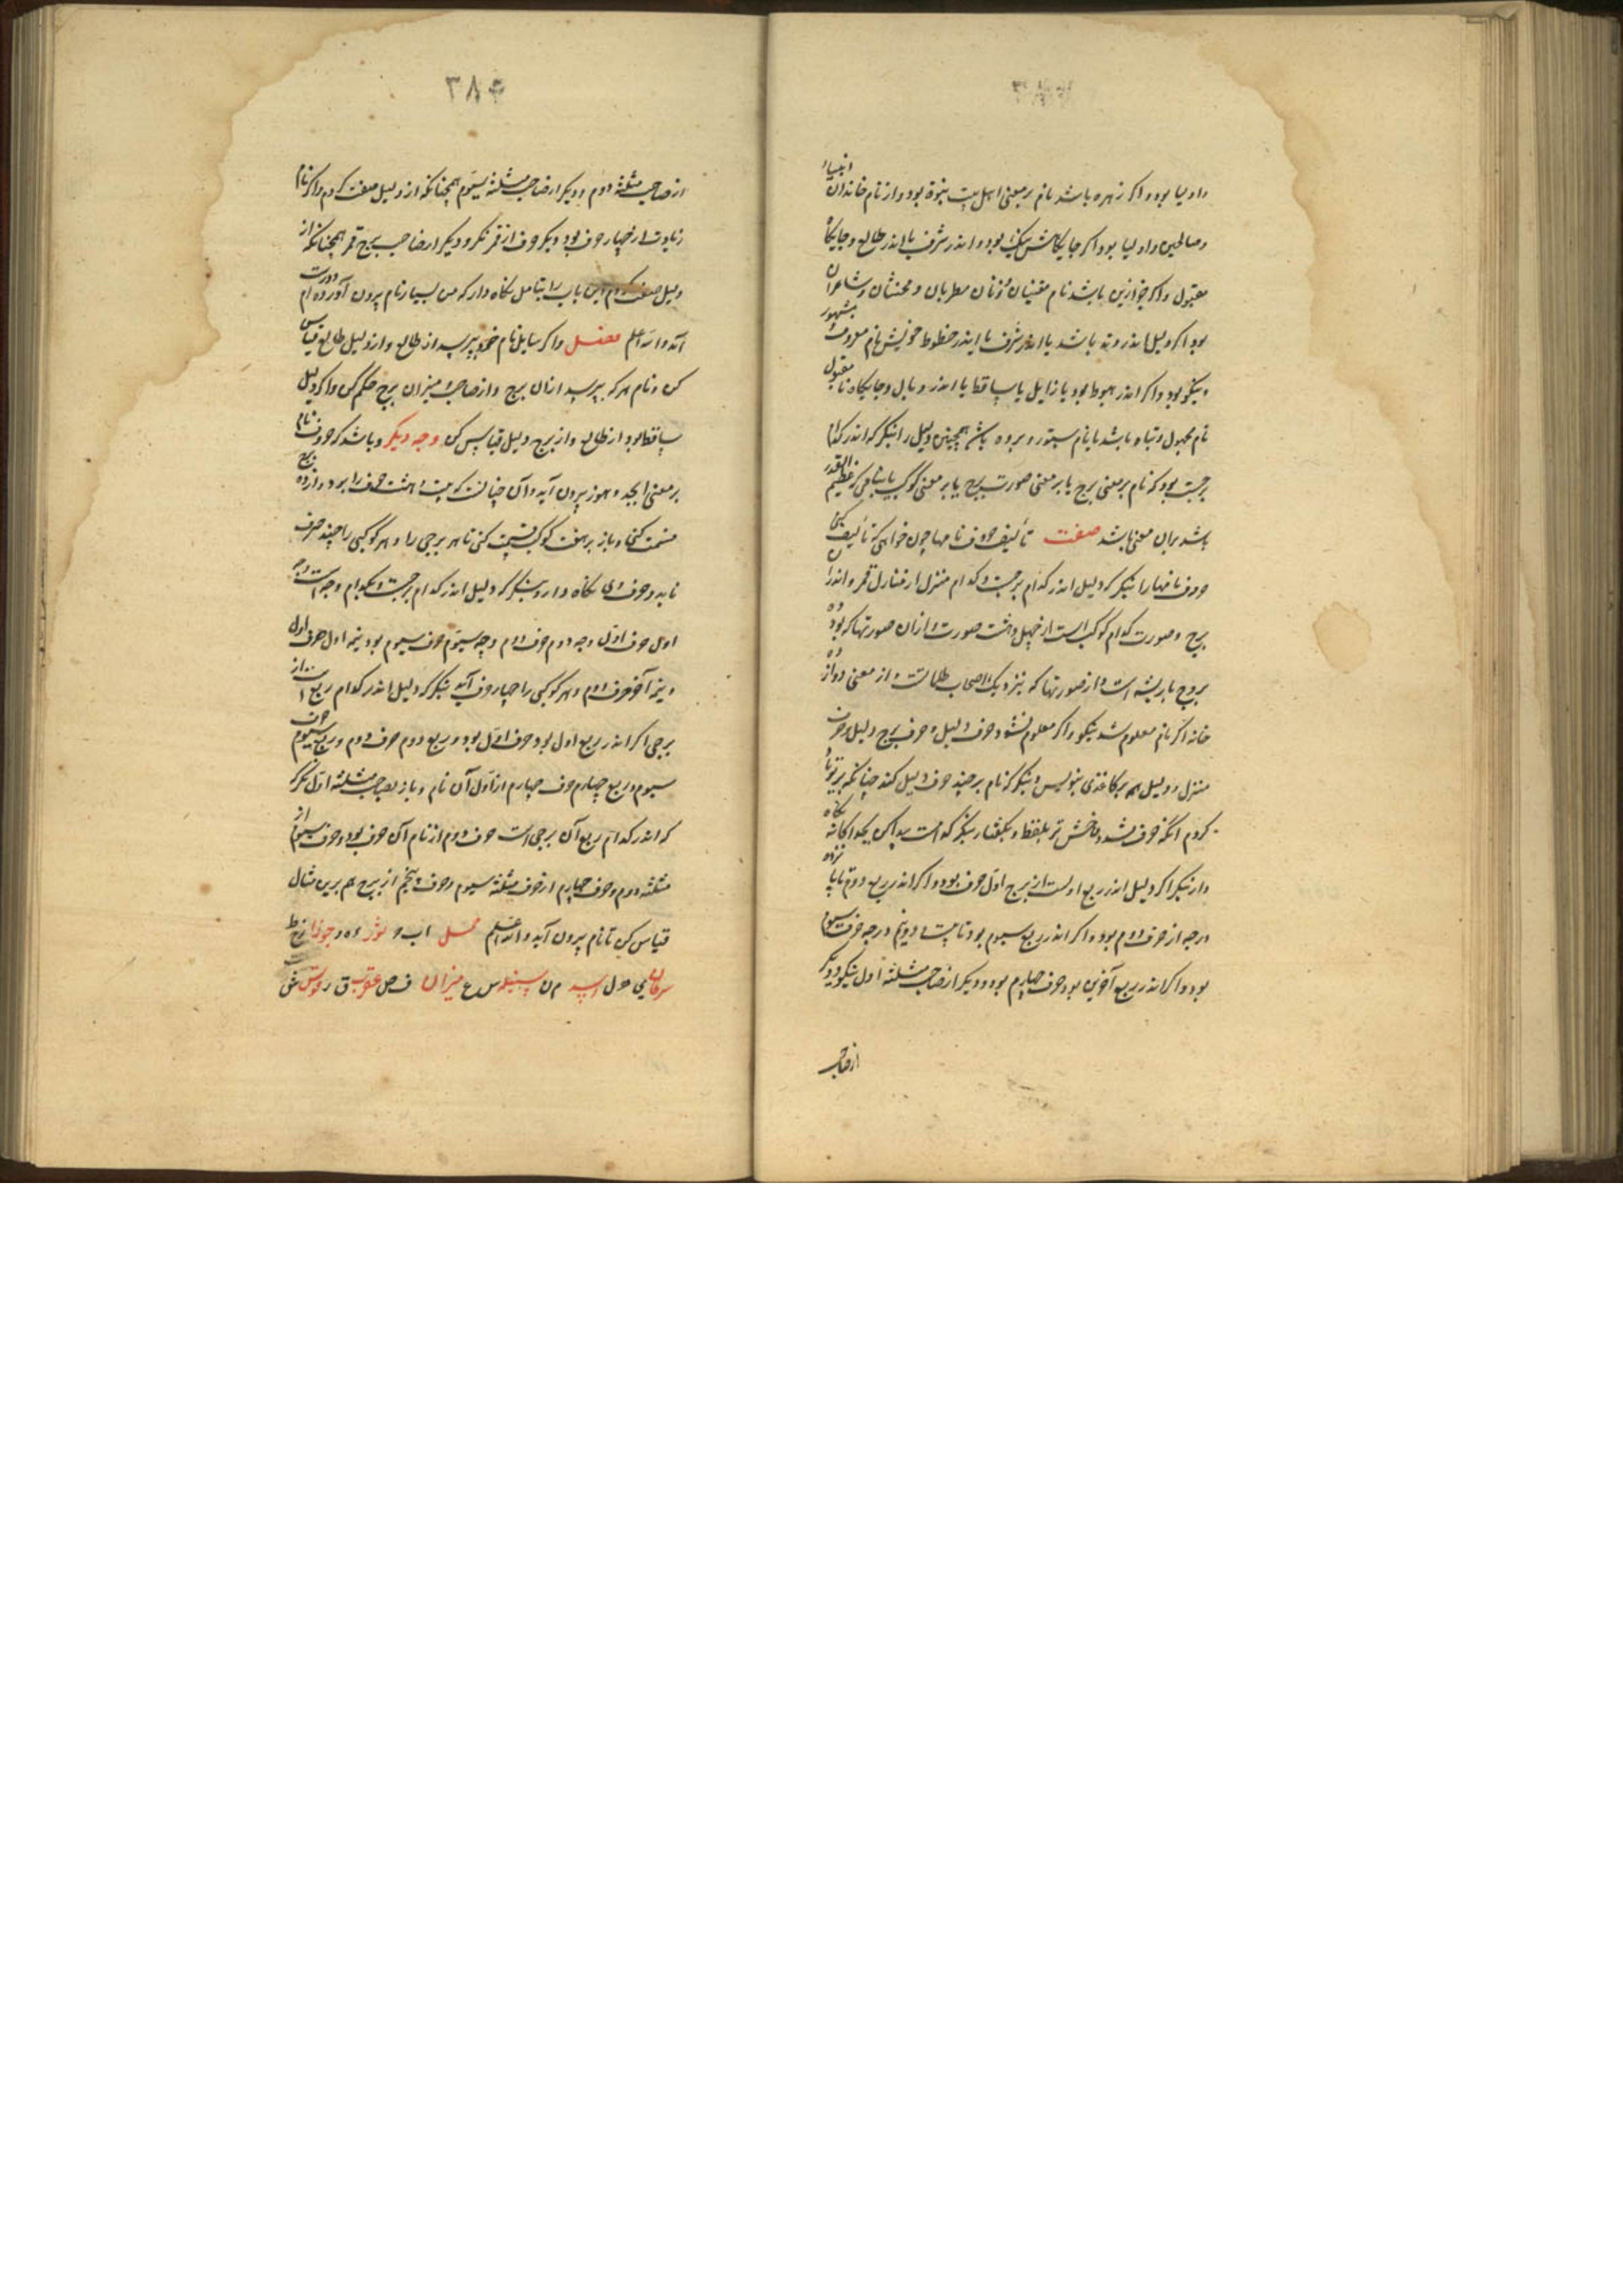 واولیا بود و اکر زهره باشد نام بر معنی اهل بیت نبوة بود و از نام خاندان انبیاء
وصالحین و اولیا بود اکر جایکاهش نیک بود و اندر شرف یا اندر طالع و جایکاه
مقبول و اکر جز ازین باشد نام مغنیان و زنان مطربان و مخنثان و شاعران
بود اکر دلیل اندر وتد باشد یا اندر شرف یا اندر حظوظ خویش نام معروف و مشهور
و نیکو بود و اکر اندر هبوط بود یا زایل یا ساقط یا اندر وبال و جایکاه نا مقبول
نام مجهول و تباه باشد یا نام ستور و برده باشد همچنین دلیل را بنکر که اندر کدام
برجست بود که نام بر معنی برج یا بر معنی صورت برج یا بر معنی کوکب یا عظیم القدر
باشد بران معنی باشد صفت تألیف حروف نامها چون خواهی که تألیف کنی
حروف نامها را بنکر که دلیل اندر کدام برجست و کدام منزل از منازل قمر و اندران
برج و صورت کدام کوکب است از چهل و هشت صورت و ازان صورتها که بود
بروج یا ریشه است و از صورتها که بنزدیک اصحاب طلسمات و از معنی دوازده
خانه اکر نام معلوم شد نیکو و اکر معلوم نشود حرف دلیل و حرف برج دلیل و حرف
منزل و دلیل هم بر کاغذی بنویس و بنکر که نام بر چند حرف دلیل کند چنانکه بر تو یاد
کردم آنکه حرف بتلفظ و بکفتار بنکر که است پیدا کن یکدا کانه نکاه
دار بنکر اکر دلیل اندر ربع اولست از برج اول حرف بود و اکر اندر ربع دوم تا پانزده
درجه از حرف دوم بود و اکر اندر ربع سیوم بود تا بیست و دو نیم درجه حرف سیوم
بود و اکر اندر ربع آخرین بود حرف چهارم بود و دیکر از صاحب مثلثه اول بنکر و دیکر
از صاحب
۳۸۴
از صاحب مثلثه دوم و دیکر از صاحب مثلثه سیوم همچنانکه از دلیل صفت کردم و اکر نام
زیادت از چهار حرف بود دیکر حرف از قمر نکر و دیکر از صاحب برج قمر همچنانکه از
دلیل صفت کردم این باب را بتامل نکاه دار که من بسیار نام بیرون آورده ام و درست
آمد والله اعلم فصل و اکر سایل نام خود بپرسد از طالع و از دلیل طالع قیاس
کن و نام هر که بپرسد ازان برج و از صاحب و میزان برج حکم کن و اکر دلیل
ساقط بود از طالع و از برج دلیل قیاس کن وجه دیکر و باشد که حروف نام
بر معنی ابجد و هوز بیرون آید و آن چنانست که بیست و هشت حرف را بر دوازده برج
قسمت کنی و باز بر هفت کوکب قسمت کنی تا هر برجی را و هر کوکبی را چند حرف
ناید و حرف وی نکاه دار و بنکر که دلیل اندر کدام برجست و بکدام وجه است وجه
اول حرف اول وجه دوم حرف دوم وجه سیوم حرف سیوم بود نیمه اول حرف اول
و نیمه آخر حرف دوم و هر کوکبی را چهار حرف آید بنکر که دلیل اندر کدام ربع است از
برجی اکر اندر ربع اول بود حرف اول بود و ربع دوم حرف دوم و ربع سیوم حرف
سیوم و ربع چهارم حرف چهارم از اول آن نام و باز بصاحب مثلثه اول نکر
که اندر کدام ربع آن برجی است حرف دوم از نام آن حرف بود و حرف سیوم از
مثلثه دوم و حرف چهارم از حرف مثلثه سیوم و حرف پنجم از برج هم برین مثال
قیاس کن تا نام بیرون آید والله اعلم حمل اب و ثور ه و جوزا ز ح ط
سرطان ی ک ل اسد م ن سنبله س ع میزان ف ص عقرب ق ر قوس ش ت